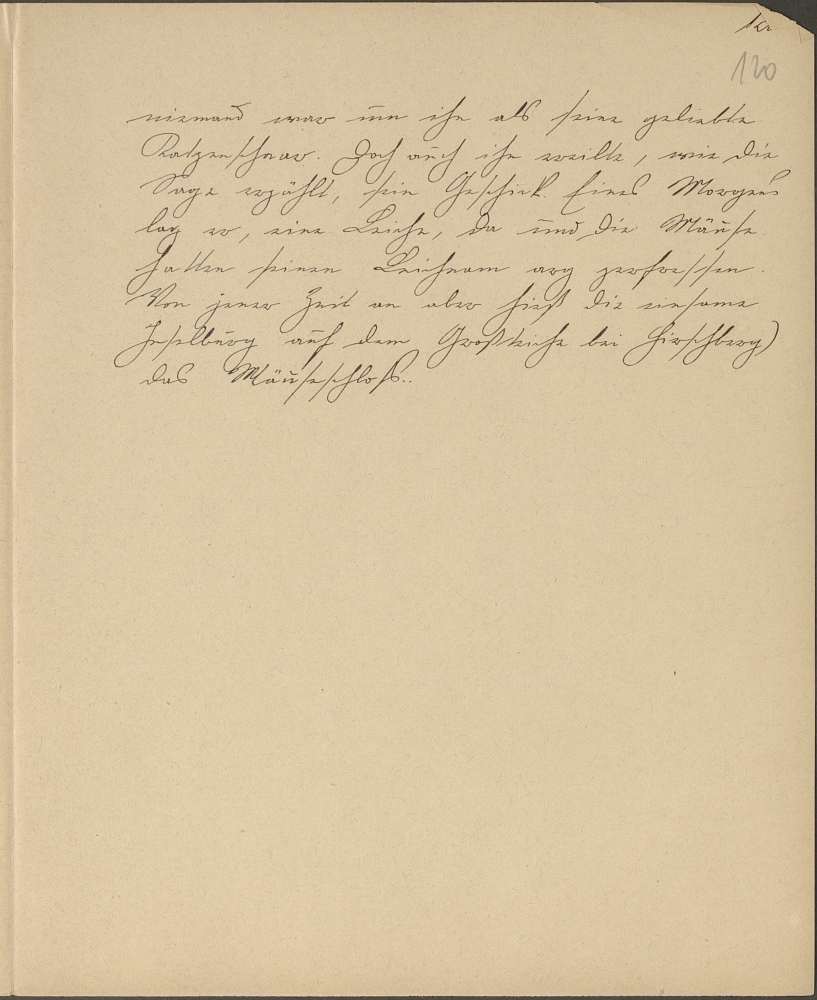 120
niemand war um ihn als seine geliebte
Katzenschaar. Doch auch ihn ereilte, wie die
Sage erzählt, sein Geschick. Eines Morgens
lag er, eine Leiche, da und die Mäuse
hatten seinen Leichnam arg zerfressen.
Von jener Zeit an aber hieß die einsame
Inselburg auf dem Großteiche bei Hirschberg)
das Mäuseschloß..